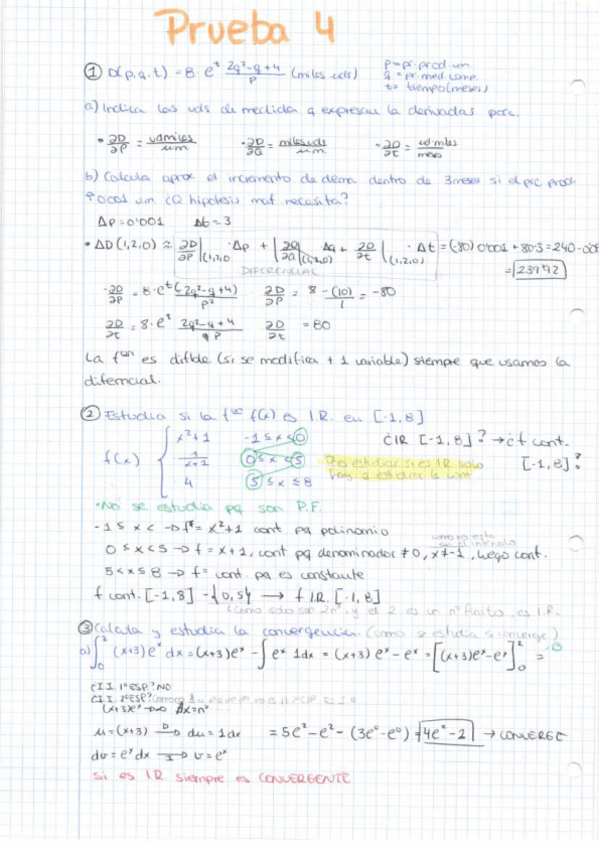 Prueba 4
① D(p,q,t) = 8 · e^t (2q²-q+4)/p (miles uds) p = pr. prod. um
q = pr. med. comp.
t = tiempo (meses)
a) Indica las uds de medida q expresan la derivadas parc.
• ∂D/∂P = uds miles/u.m • ∂D/∂Q = miles uds/u.m • ∂D/∂t = ud miles/mes
b) Calcula aprox el incremento de dema. dentro de 3 meses si el prc prod.
↑0'001 u.m. ¿Q hipótesis mat. necesita?
Δp = 0'001 Δt = 3
• ΔD(1,2,0) ≈ ∂D/∂P |(1,2,0) · Δp + ∂D/∂Q |(1,2,0) Δq + ∂D/∂t |(1,2,0) · Δt = (-80) 0'001 + 80·3 = 240 - 0'08
DIFERENCIAL = 239'92
∂D/∂P = 8 · e^t (-(2q²-q+4))/p² ∂D/∂P = 8 -(10)/1 = -80
∂D/∂t = 8 · e^t 2q²-q+4 ∂D/∂t = 80
La f^ion es difble (si se modifica + 1 variable) siempre que usamos la
diferencial.
② Estudia si la f^ion f(x) es I.R. en [-1,8]
f(x) { x²+1 -1 ≤ x < 0 ¿IR [-1,8]? → ¿f cont.
1/(x+1) 0 ≤ x < 5 [-1,8]?
4 5 ≤ x ≤ 8
• No se estudia pq son P.F.
-1 ≤ x < → f = x²+1 cont pq polinomio
0 ≤ x < 5 → f = x+1, cont pq denominador ≠ 0, x ≠ -1, luego cont.
5 < x ≤ 8 → f = cont. pq es constante
f cont. [-1,8] - {0,5} → f I.R. [-1,8]
(Como solo son 2 nº, y el 2 es un nº finito, es I.R.
③ Calcula y estudia la convergencia. (como se estudia si converge)
a) ∫₀² (x+3) e^x dx = (x+3)e^x - ∫ e^x 1dx = (x+3) e^x - e^x = [(x+3)e^x - e^x]₀² =
¿I.I. 1ª ESP? NO
u = (x+3) → du = 1dx = 5e² - e² - (3e⁰ - e⁰) = 4e² - 2 → CONVERGE
dv = e^x dx → v = e^x
si es I.R. siempre es CONVERGENTE